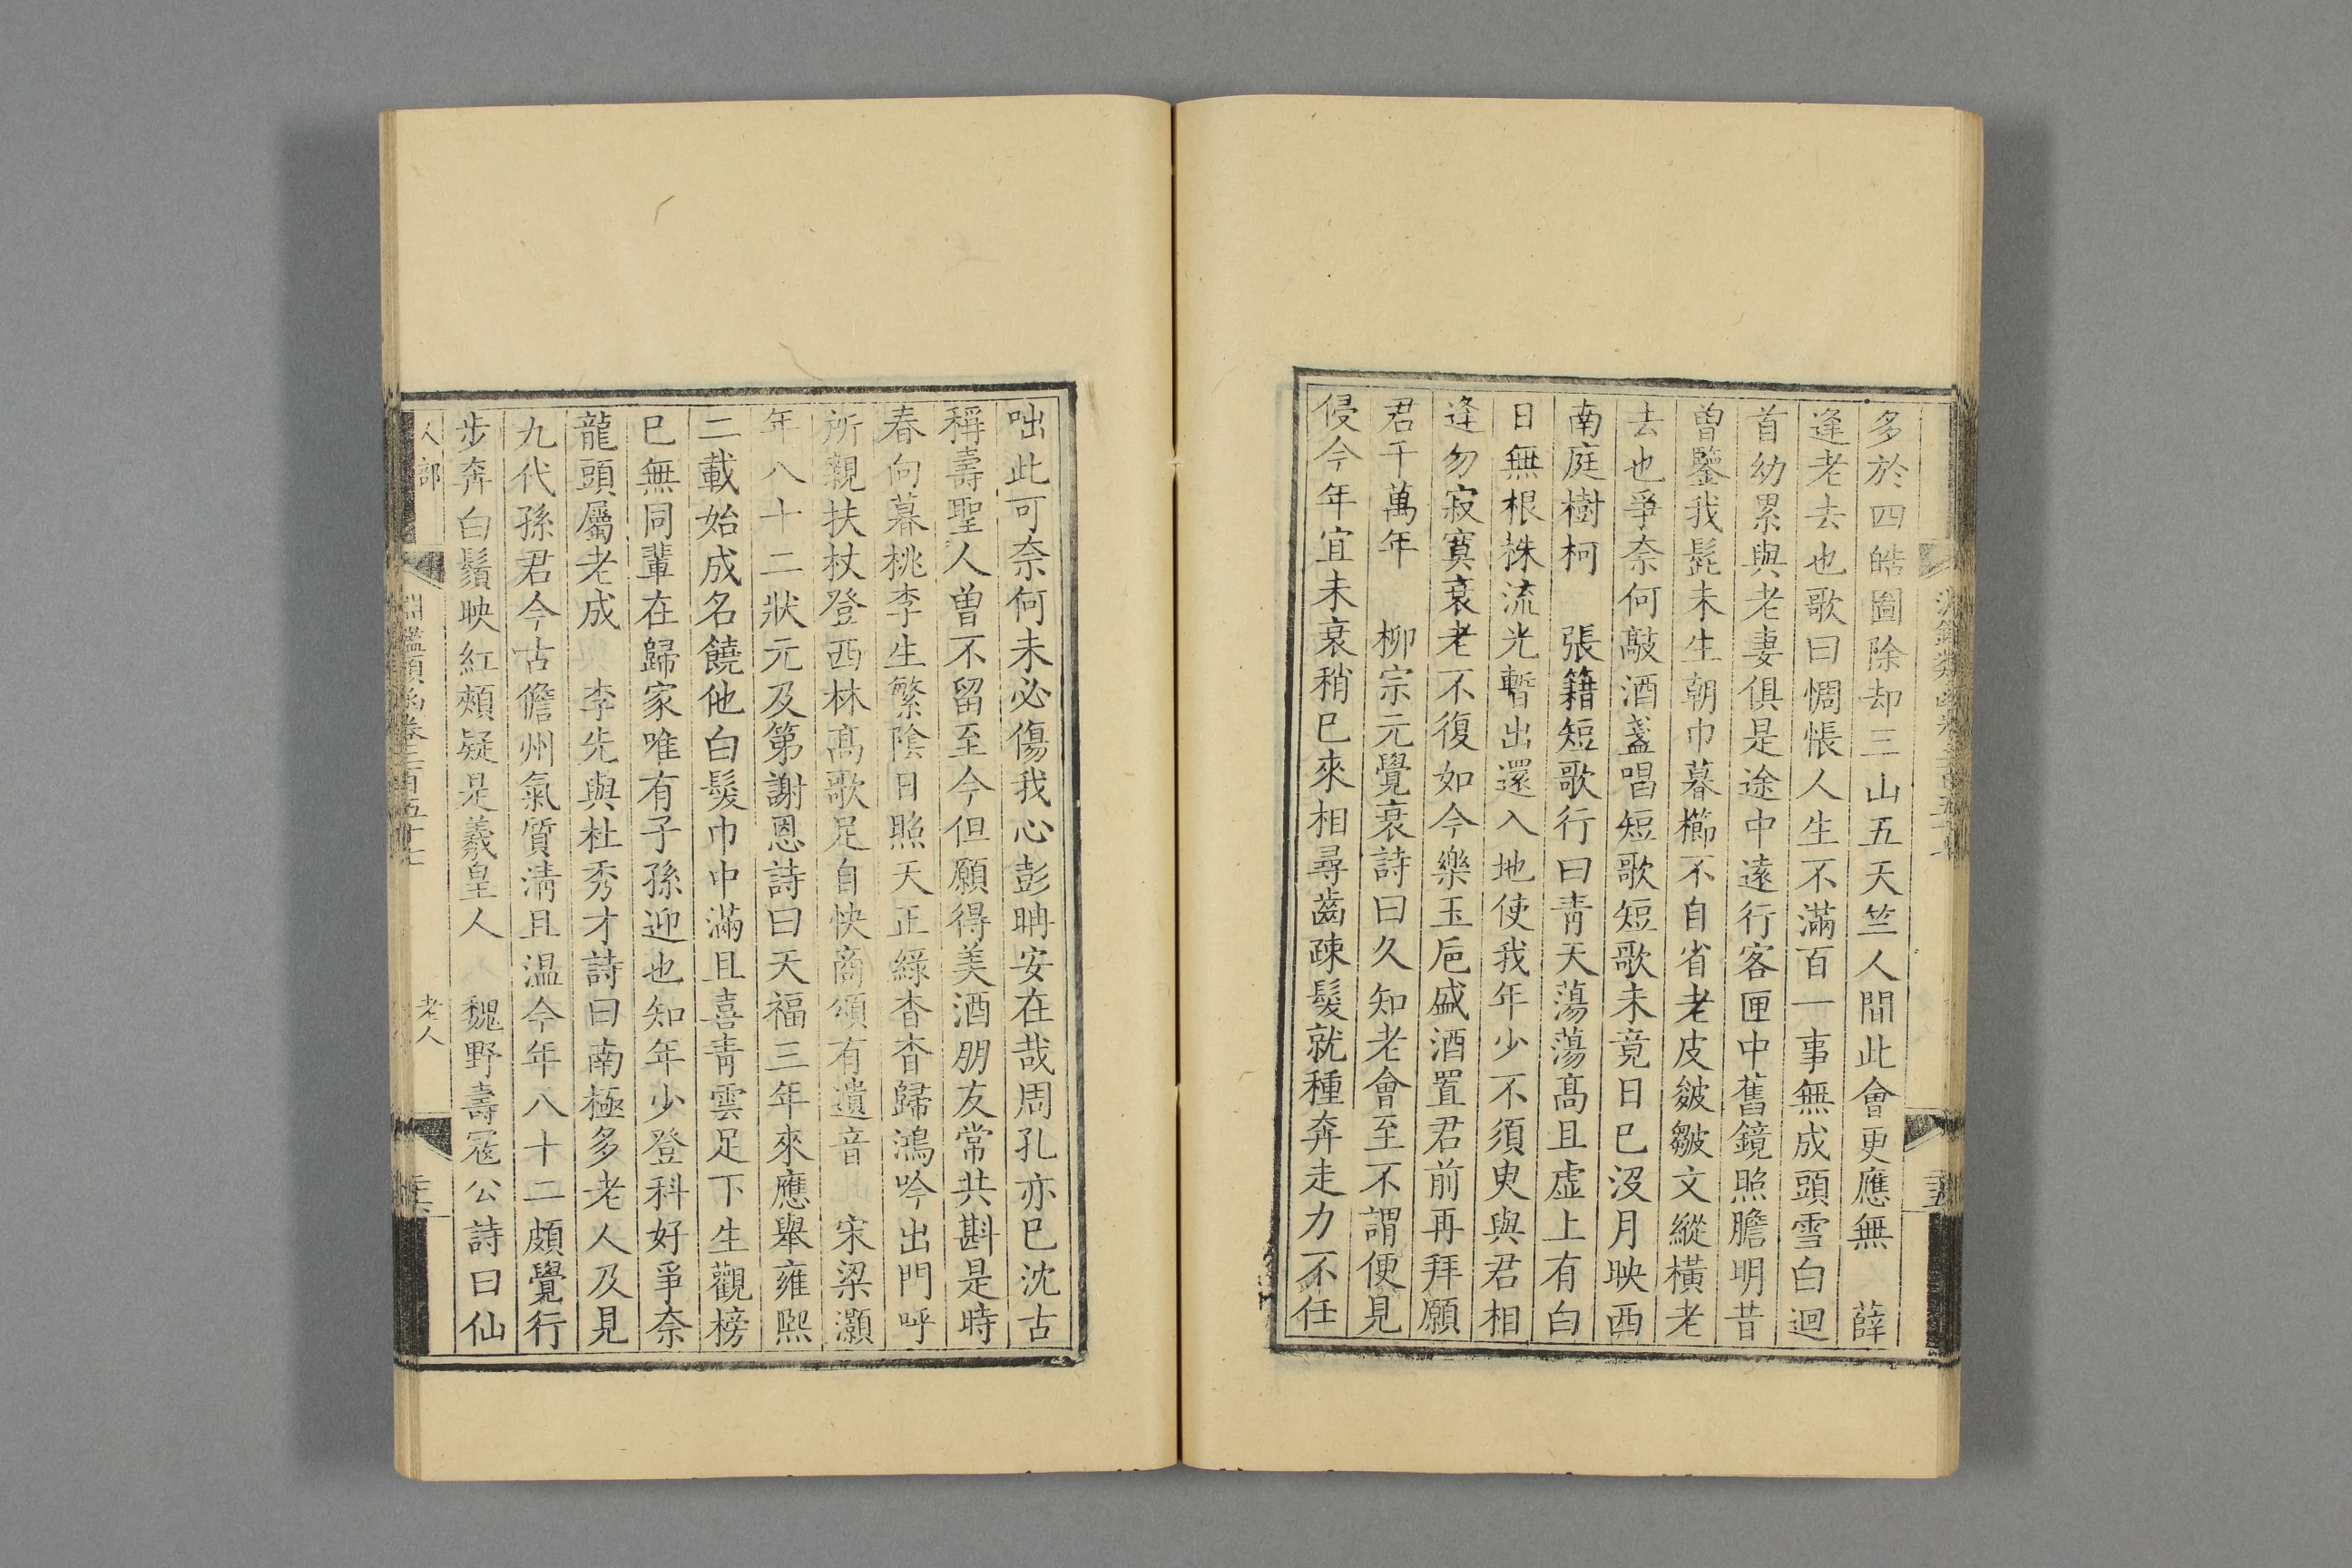 多於四皓圖除却三山五天竺人間此會更應無　薛
逢老去也歌曰惆悵人生不滿百一事無成頭雪白迴
首幼累與老妻俱是途中遠行客匣中舊鏡照膽明昔
曾鑒我髭未生朝巾暮櫛不自省老皮皴皺文縱橫老
去也爭奈何敲酒盞唱短歌短歌未竟日已沒月映西
南庭樹柯　張籍短歌行曰青天蕩蕩高且虛上有白
日無根株流光暫出還入地使我年少不須臾與君相
逢勿寂寞衰老不復如今樂玉巵盛酒置君前再拜願
君千萬年　柳宗元覺衰詩曰久知老會至不謂便見
侵今年宜未衰稍已來相尋齒疎髮就種奔走力不任
咄此可奈何未必傷我心彭聃安在哉周孔亦已沈古
稱壽聖人曾不留至今但願得美酒朋友常共斟是時
春向暮桃李生繁陰日照天正綠杳杳歸鴻吟出門呼
所親扶杖登西林高歌足自快商頌有遺音　宋梁灝
年八十二狀元及第謝恩詩曰天福三年來應舉雍熙
二載始成名饒他白髮巾中滿且喜青雲足下生觀榜
已無同輩在歸家唯有子孫迎也知年少登科好爭奈
龍頭屬老成　李先與杜秀才詩曰南極多老人及見
九代孫君今古儋州氣質清且温今年八十二頗覺行
步奔白鬚映紅頰疑是羲皇人　魏野壽寇公詩曰仙
人部　淵鑑類函卷三百五十七　老人　三十六